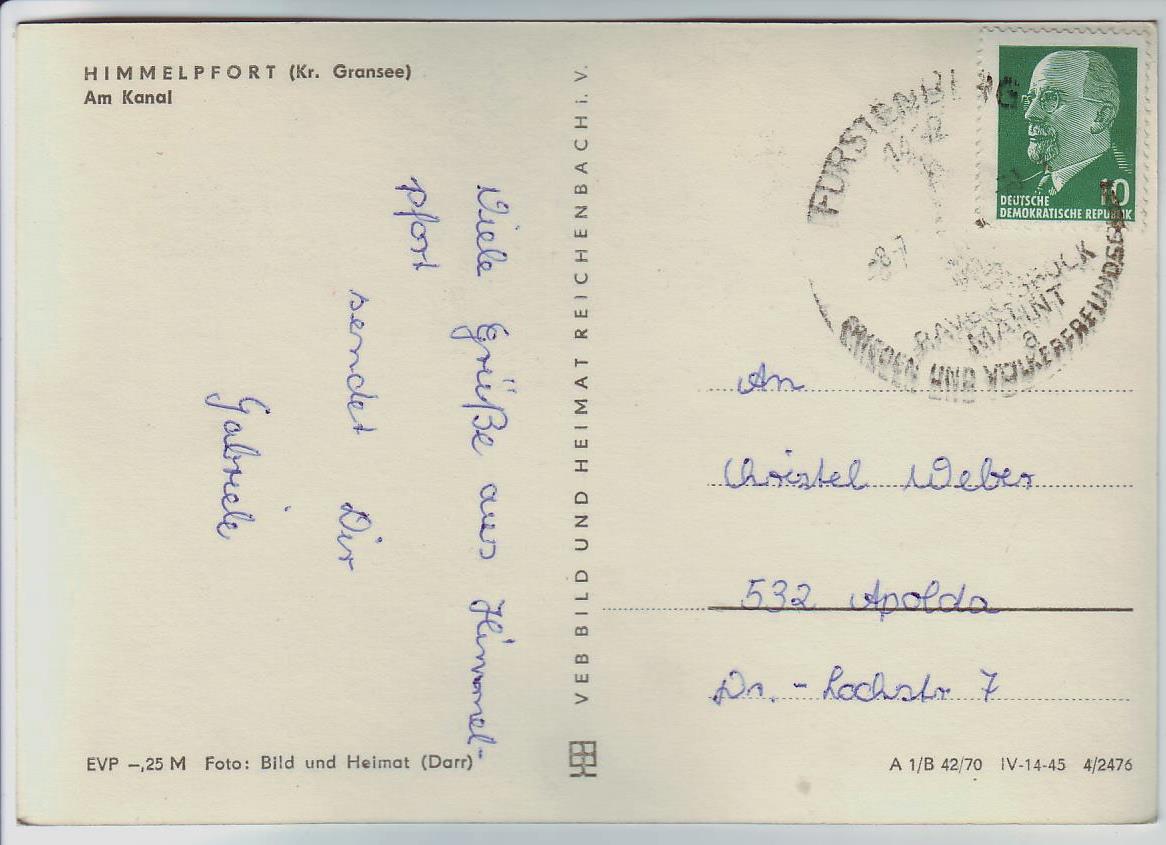 HIMMELPFORT (Kr. Gransee)
Am Kanal
Viele Grüße aus Himmel-
pfort
sendet Dir
Gabriele
EVP –,25 M Foto: Bild und Heimat (Darr)
VEB BILD UND HEIMAT REICHENBACH i. V.
DEUTSCHE
DEMOKRATISCHE REPUBLIK
10
FÜRSTENBERG
MAHNT
a
FRIEDEN UND VÖLKERFREUNDSCHAFT
An
Christel Weber
532 Apolda
Dr.-Lochstr 7
A 1/B 42/70 IV-14-45 4/2476